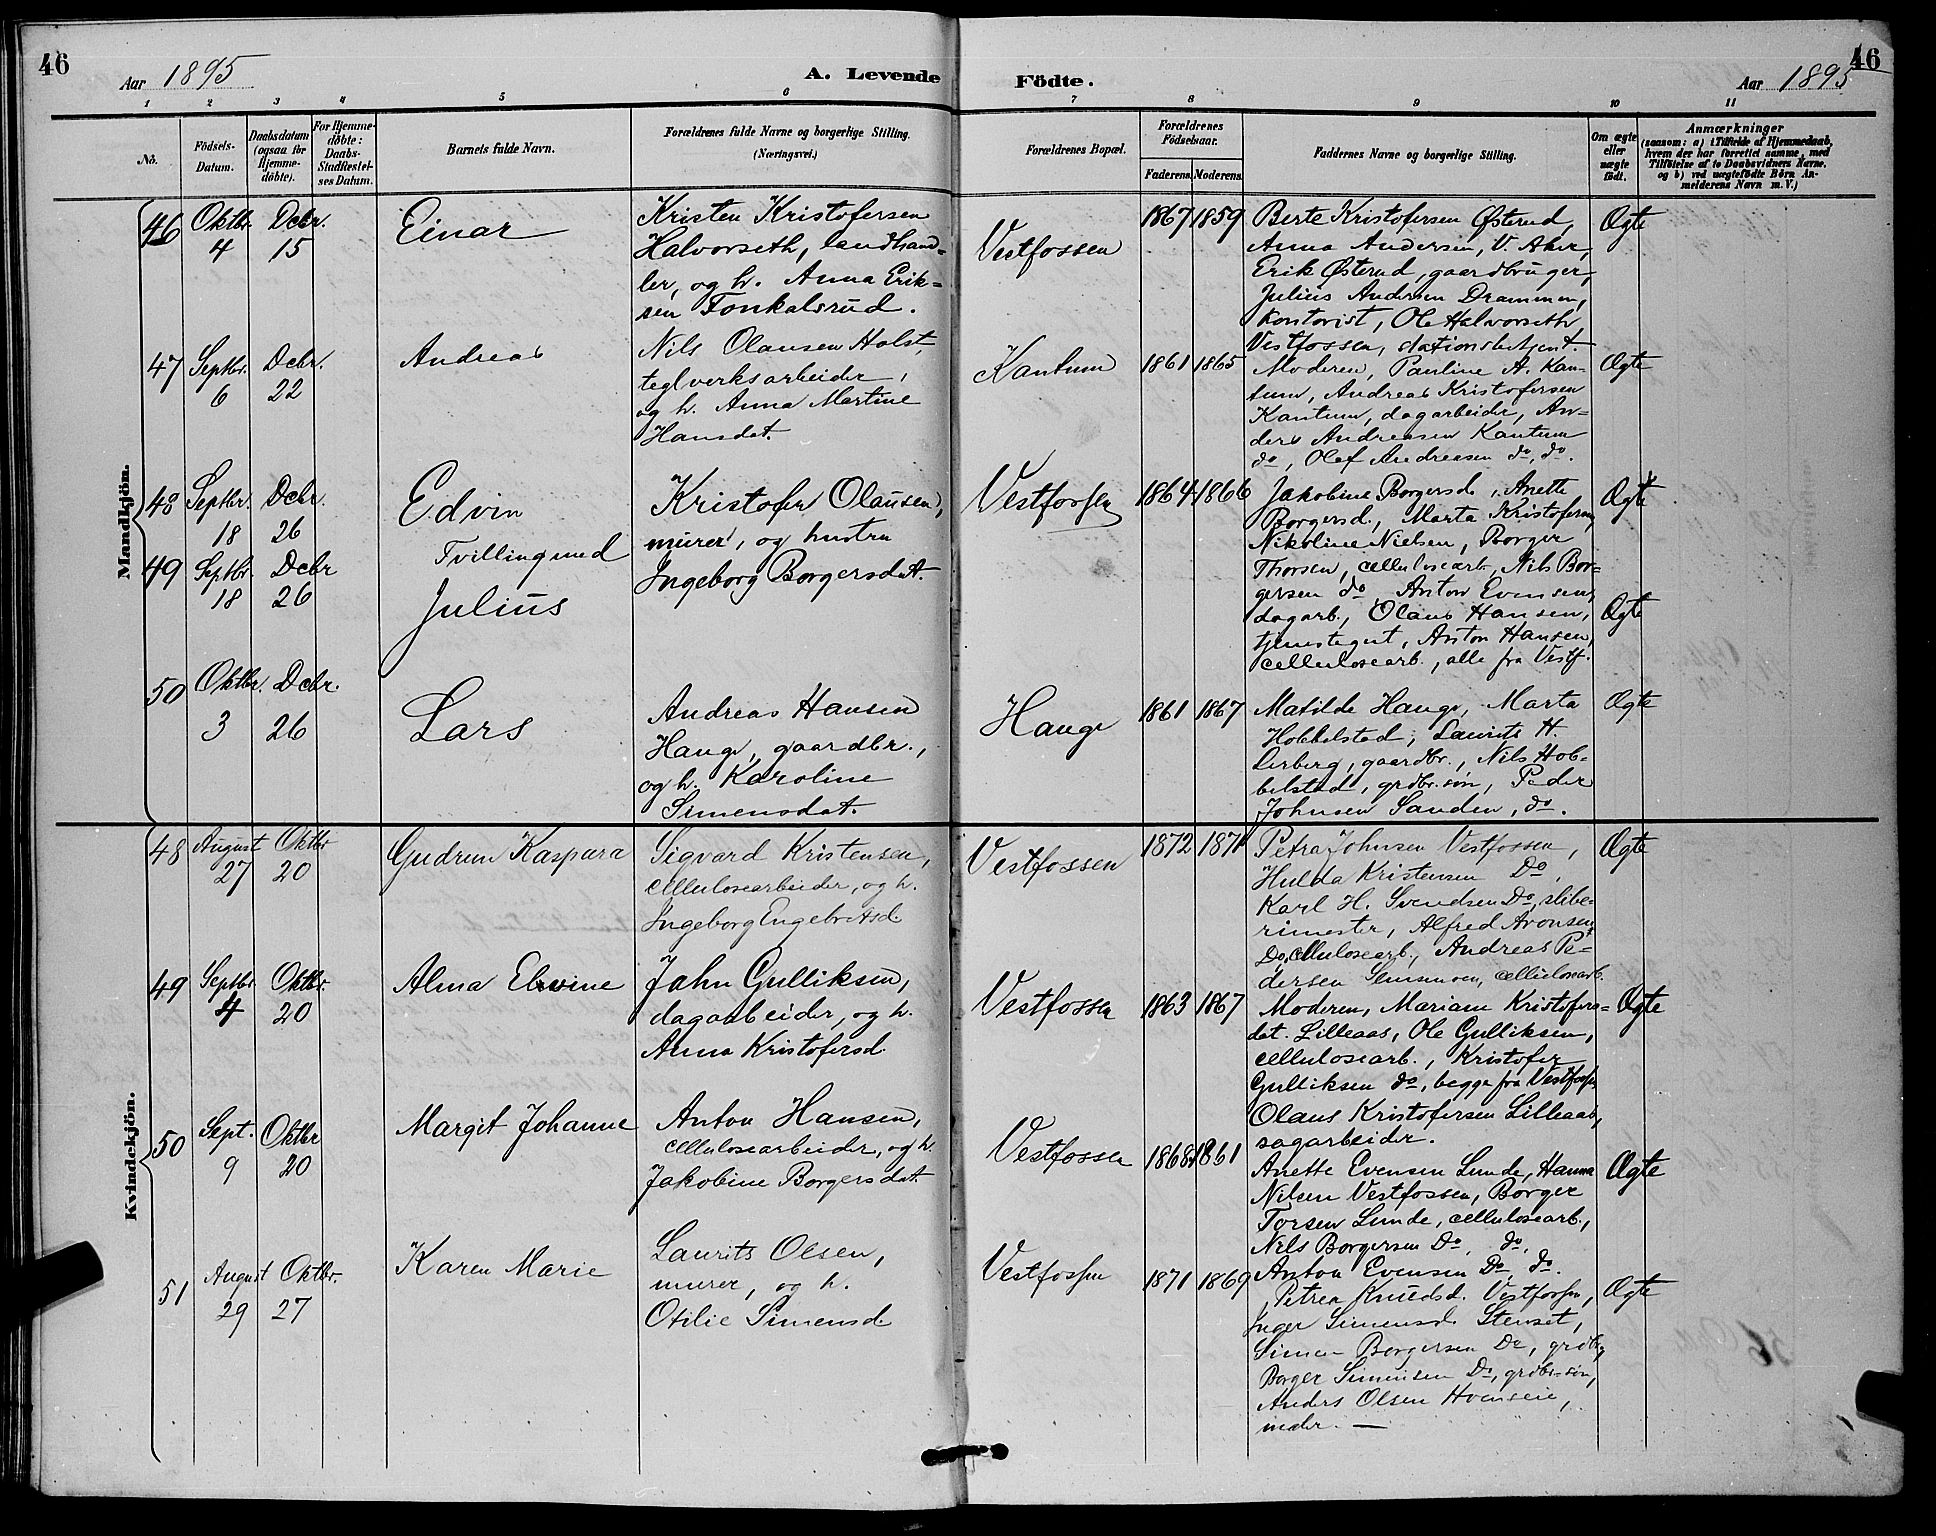 46
Aar 1895
A. Levende Födte.
Aar 1895
46
1 2 3 4 5 6 7 8 9 10 11
No.
Födsels-
Datum.
Daabsdatum
(ogsaa for
Hjemme-
döbte).
For Hjemme-
döbte:
Daabs-
Stadfæstel-
ses Datum.
Barnets fulde Navn.
Forældrenes fulde Navne og borgerlige Stilling.
(Næringsvei.)
Forældrenes Bopæl.
Forældrenes
Födselsaar.
Faderens. Moderens.
Faddernes Navne og borgerlige Stilling.
Om ægte
eller
uægte
födt.
Anmærkninger
(saasom: a) i Tilfælde af Hjemmedaab,
hvem der har forrettet samme, med
Tilföielse af to Daabsvidners Navne,
og b) ved uægtefödte Börn An-
melderens Navn m. V.)
Mandkjön.
46
Oktbr.
4
Dcbr.
15
Einar
Kristen Kristofersen
Halvorseth, landhand-
ler, og h. Anna Erik-
sen Fonkalsrud.
Vestfossen
1867 1859
Berte Kristofersen Østerud,
Anna Andersen, V. Aker,
Erik Østerud, gaardbruger,
Julius Andersen Drammen,
kontorist, Ole Halvorseth,
Vestfossen, stationsbetjent.
Ægte
47
Septbr.
6
Dcbr.
22
Andreas
Nils Olausen Holst,
teglverksarbeider,
og h. Anna Martine
Hansdat.
Kantum
1861 1865
Moderen, Pauline A. Kan-
tum, Andreas Kristofersen
Kantum, dagarbeider, An-
ders Andreasen Kantum
do, Olef Andreasen do, do.
Ægte
48
Septbr.
18
Dcbr.
26
Edvin
Tvillinger med
Kristofer Olausen,
murer, og hustru
Ingeborg Borgersdat.
Vestfossen
1864 1866
Jakobine Borgersd., Anette
Borgersd., Marta Kristofersen,
Nikoline Nielsen, Borger
Thorsen, cellulosearb., Nils Bor-
gersen do, Anton Evensen,
dagarb., Olaus Hansen,
tjenestegut, Anton Hansen,
cellulosearb., alle fra Vestf.
Ægte
49
Septbr.
18
Dcbr
26
Julius
Ægte
50
Oktbr.
3
Dcbr.
26
Lars
Andreas Hansen
Hauge, gaardbr.,
og h. Karoline
Simensdat.
Hauge
1861 1867
Matilde Hauge, Marta
Hobbelstad, Laurits H.
Lerberg, gaardbr., Nils Hob-
belstad, grdbr.søn, Peder
Johnsen Sanden, do.
Ægte
Kvindekjön.
48
August
27
Oktbr
20
Gudrun Kaspara
Sigvard Kristensen,
cellulosearbeider, og h.
Ingeborg Engebretsd.
Vestfossen
1872 1871
Petra Johnsen Vestfossen,
Hulda Kristensen Do,
Karl H. Svendsen Do, slibe-
rimester, Alfred Aronsen
Do, cellulosearb., Andreas Pe-
dersen cellulosearb.
Ægte
49
Septbr
4
Oktbr.
20
Alma Elvine
Jahn Gulliksen,
dagarbeider, og h.
Anna Kristofersd.
Vestfossen
1863 1867
Moderen, Mariam Kristofers-
dat. Lilleaas, Ole Gulliksen,
cellulosearb., Kristofer
Gulliksen do, begge fra Vestfossen
Olaus Kristofersen Lilleaas,
sagarbeider.
Ægte
50
Sept.
9
Oktbr
20
Margit Johanne
Anton Hansen,
cellulosearbeider, og h.
Jakobine Borgersdat.
Vestfossen
1868 1861
Anette Evensen Lunde, Hanna
Nilsen Vestfossen, Borger
Torsen Lunde, cellulosearb.,
Nils Borgersen Do, do,
Anton Evensen Do, do.
Ægte
51
August
29
Oktbr.
27
Karen Marie
Laurits Olsen,
murer, og h.
Otilie Simensd.
Vestfossen
1871 1869
Petrea Knudsd. Vestfossen,
Inger Simensd. Stenset,
Simen Borgersen Do, grdbr.,
Borger Simensen Do, grdbr.søn,
Anders Olsen
maler. —
Ægte